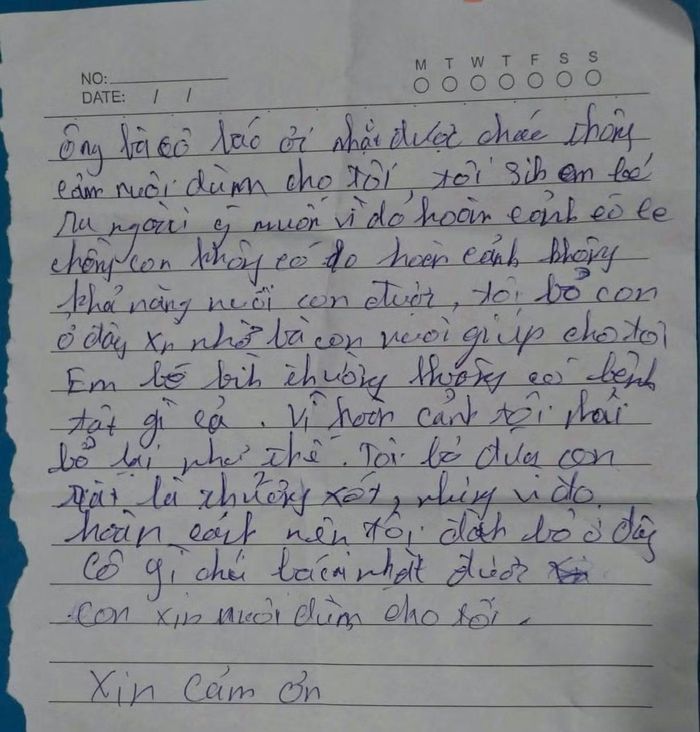 M T W T F S S
NO:
DATE: / /
Ông bà cô bác ơi nhặt được cháu thông
cảm nuôi dùm cho tôi, tôi sih em bé
ra ngoài ý muốn vì do hoàn cảnh cô le
chồng con không có do hoàn cảnh không
khả năng nuôi con được, tôi bỏ con
ở đây xn nhờ bà con nuôi giúp cho tôi
Em bé bìh thường không có bệnh
tật gì cả. Vì hoàn cảnh tôi phải
bỏ lại như thế. Tôi bỏ đứa con
rất là thương xót, nhưng vì do
hoàn cảnh nên tôi đàh bỏ ở đây
Cô gì chú bác ai nhặt được
con xin nuôi dùm cho tôi.
Xin cảm ơn